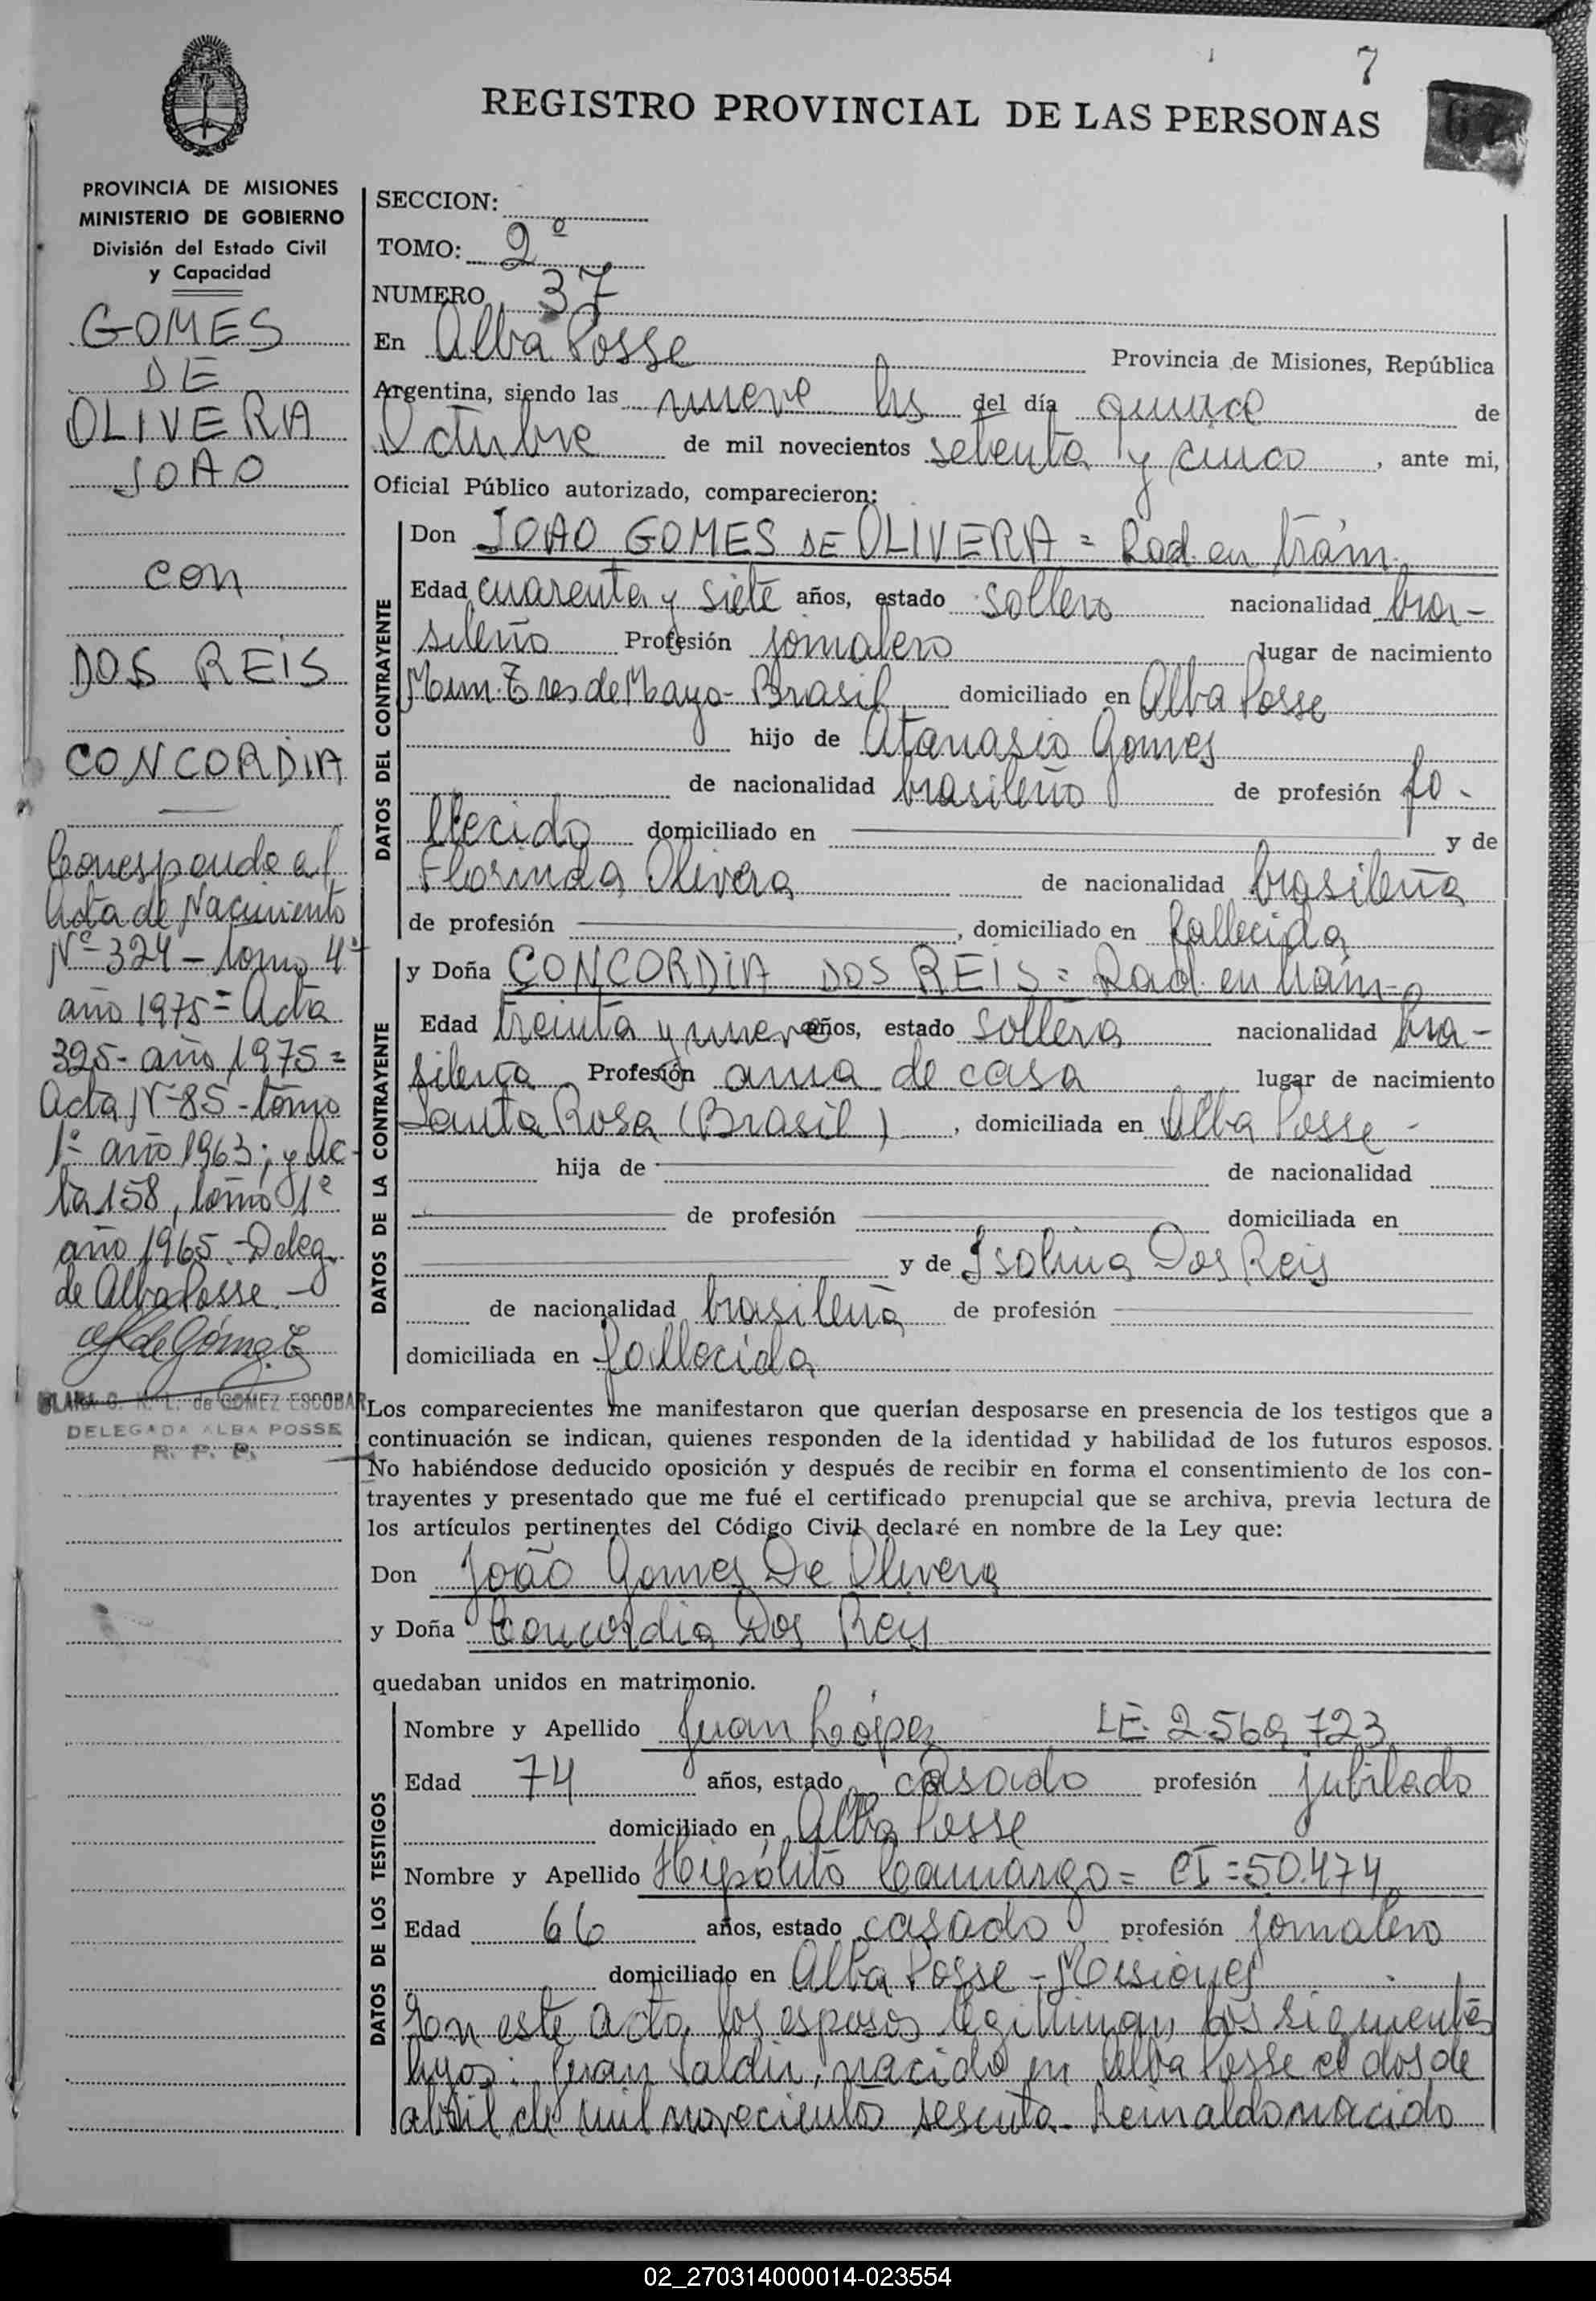 7
REGISTRO PROVINCIAL DE LAS PERSONAS
PROVINCIA DE MISIONES
MINISTERIO DE GOBIERNO
División del Estado Civil
y Capacidad
GOMES
DE
OLIVERA
JOAO
con
DOS REIS
CONCORDIA
Corresponde al
Acta de Nacimiento
Nº 324 - tomo 4º
año 1975 = Acta
325 - año 1975 =
Acta Nº 85 - tomo
1º año 1963; y Ac-
ta 158, tomo 1º
año 1965 - Deleg.
de Alba Posse. -
de GOMEZ ESCOBAR
DELEGADA ALBA POSSE
R. P. P.
SECCION:
TOMO: 2º
NUMERO 37
En Alba Posse Provincia de Misiones, República
Argentina, siendo las nueve hs del día quince de
Octubre de mil novecientos setenta y cinco, ante mi,
Oficial Público autorizado, comparecieron:
DATOS DEL CONTRAYENTE
Don JOAO GOMES DE OLIVERA = Rad. en trám.
Edad cuarenta y siete años, estado soltero nacionalidad bra-
sileño Profesión jornalero lugar de nacimiento
Mun. Tres de Mayo - Brasil domiciliado en Alba Posse
hijo de Atanasio Gomes
de nacionalidad brasileño de profesión fa-
llecido domiciliado en y de
Florinda Olivera de nacionalidad brasileña
de profesión , domiciliado en fallecida
DATOS DE LA CONTRAYENTE
y Doña CONCORDIA DOS REIS = Rad. en trám-
Edad treinta y nueve años, estado soltera nacionalidad bra-
sileña Profesión ama de casa lugar de nacimiento
Santa Rosa (Brasil), domiciliada en Alba Posse -
hija de de nacionalidad
de profesión domiciliada en
y de Isolina Dos Reis
de nacionalidad brasileña de profesión
domiciliada en fallecida
Los comparecientes me manifestaron que querían desposarse en presencia de los testigos que a
continuación se indican, quienes responden de la identidad y habilidad de los futuros esposos.
No habiéndose deducido oposición y después de recibir en forma el consentimiento de los con-
trayentes y presentado que me fué el certificado prenupcial que se archiva, previa lectura de
los artículos pertinentes del Código Civil declaré en nombre de la Ley que:
Don João Gomes De Olivera
y Doña Concordia Dos Reis
quedaban unidos en matrimonio.
DATOS DE LOS TESTIGOS
Nombre y Apellido Juan López LE. 2.569.723
Edad 74 años, estado casado profesión jubilado
domiciliado en Alba Posse
Nombre y Apellido Hipólito Camargo = CI = 50.474
Edad 66 años, estado casado profesión jornalero
domiciliado en Alba Posse - Misiones
Con este acto los esposos legitiman los siguientes
hijos: Juan Valdir, nacido en Alba Posse el dos de
abril de mil novecientos sesenta - Reinaldo nacido
02_270314000014-023554